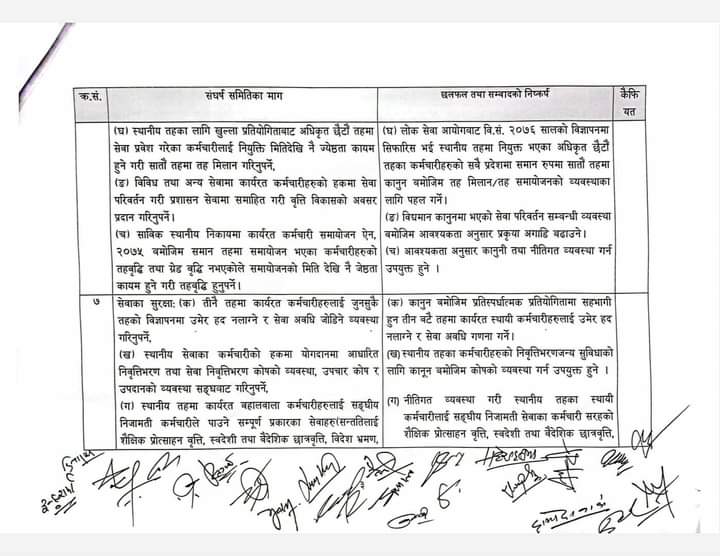 क.सं.
संघर्ष समितिका माग
छलफल तथा सम्वादको निष्कर्ष
कैफि
यत
(घ) स्थानीय तहका लागि खुल्ला प्रतियोगिताबाट अधिकृत छैटौं तहमा
सेवा प्रवेश गरेका कर्मचारीलाई नियुक्ति मितिदेखि नै ज्येष्ठता कायम
हुने गरी सातौं तहमा तह मिलान गरिनुपर्ने,
(ङ) विविध तथा अन्य सेवामा कार्यरत कर्मचारीहरुको हकमा सेवा
परिवर्तन गरी प्रशासन सेवामा समाहित गरी वृत्ति विकासको अवसर
प्रदान गरिनुपर्ने।
(च) साविक स्थानीय निकायमा कार्यरत कर्मचारी समायोजन ऐन,
२०७५ बमोजिम समान तहमा समायोजन भएका कर्मचारीहरुको
तहबृद्धि तथा ग्रेड बृद्धि नभएकोले समायोजनको मिति देखि नै जेष्ठता
कायम हुने गरी तहबृद्धि हुनुपर्ने।
(घ) लोक सेवा आयोगबाट वि.सं. २०७६ सालको विज्ञापनमा
सिफारिस भई स्थानीय तहमा नियुक्त भएका अधिकृत छैटौं
तहका कर्मचारीहरुको सबै प्रदेशमा समान रुपमा सातौं तहमा
कानुन बमोजिम तह मिलान/तह समायोजनको व्यवस्थाका
लागि पहल गर्ने।
(ङ) विद्यमान कानुनमा भएको सेवा परिवर्तन सम्वन्धी व्यवस्था
बमोजिम आवश्यकता अनुसार प्रकृया अगाडि बढाउने।
(च) आवश्यकता अनुसार कानुनी तथा नीतिगत व्यवस्था गर्न
उपयुक्त हुने ।
७
सेवाका सुरक्षा: (क) तीनै तहमा कार्यरत कर्मचारीहरुलाई जुनसुकै
तहको विज्ञापनमा उमेर हद नलाग्ने र सेवा अवधि जोडिने व्यवस्था
गरिनुपर्ने,
(ख) स्थानीय सेवाका कर्मचारीको हकमा योगदानमा आधारित
निवृत्तिभरण तथा सेवा निवृत्तिभरण कोषको व्यवस्था, उपचार कोष र
उपदानको व्यवस्था सङ्घबाट गरिनुपर्ने,
(ग) स्थानीय तहमा कार्यरत बहालवाला कर्मचारीहरुलाई सङ्घीय
निजामती कर्मचारीले पाउने सम्पूर्ण प्रकारका सेवाहरु(सन्ततिलाई
शैक्षिक प्रोत्साहन वृत्ति, स्वदेशी तथा वैदेशिक छात्रवृत्ति, विदेश भ्रमण,
(क) कानुन बमोजिम प्रतिस्पर्धात्मक प्रतियोगितामा सहभागी
हुन तीन वटै तहमा कार्यरत स्थायी कर्मचारीहरुलाई उमेर हद
नलाग्ने र सेवा अवधि गणना गर्ने।
(ख) स्थानीय तहका कर्मचारीहरुको निवृत्तिभरणजन्य सुविधाको
लागि कानून बमोजिम कोषको व्यवस्था गर्न उपयुक्त हुने ।
(ग) नीतिगत व्यवस्था गरी स्थानीय तहका स्थायी
कर्मचारीलाई सङ्घीय निजामती सेवाका कर्मचारी सरहको
शैक्षिक प्रोत्साहन वृत्ति, स्वदेशी तथा वैदेशिक छात्रवृत्ति,